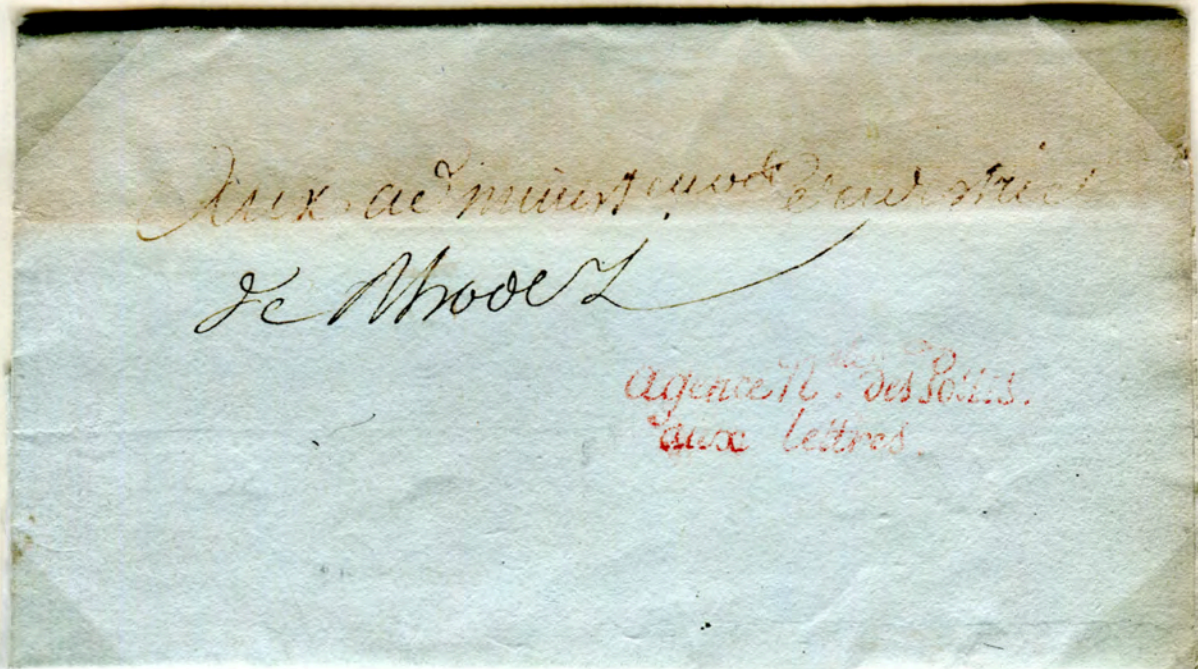 Aux administrateurs du district
de Rhodez
Agence N.ale des Postes.
aux lettres.